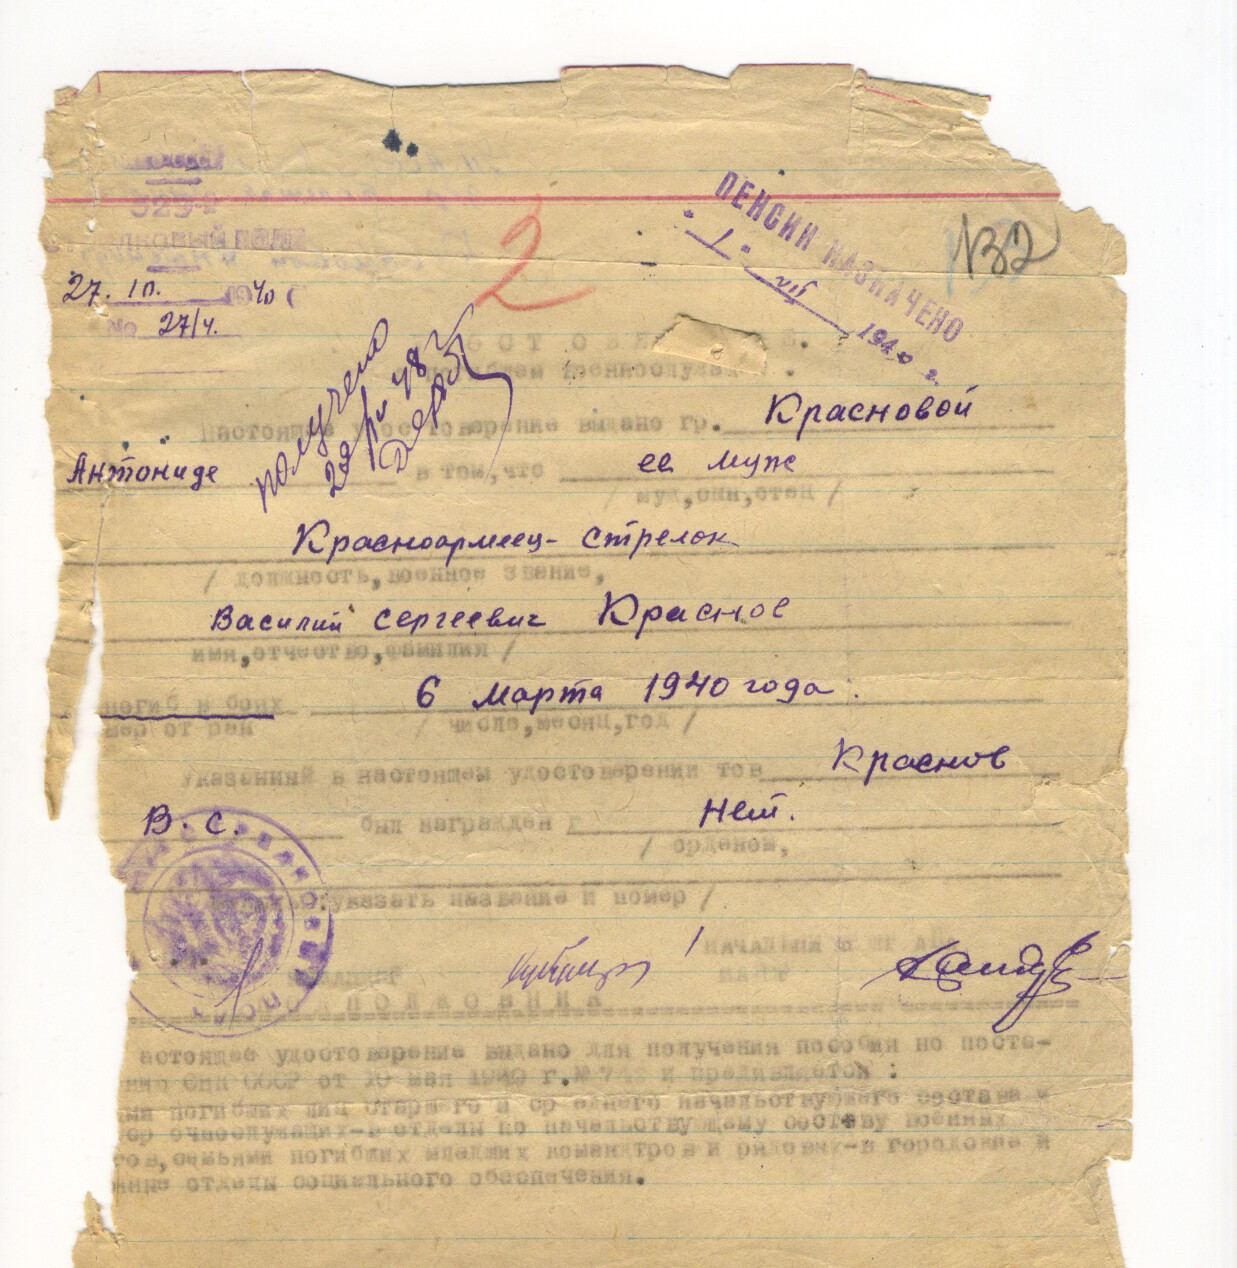 132
ПЕНСИИ НАЗНАЧЕНО
"1" VII 1940 г.
2
529-й
27. III. 1940 г
№ 27/4.
получено
Настоящее удостоверение выдано гр. Красновой
Антониде в том, что ее муж
/ муж, сын, отец /
Красноармеец - стрелок
/ должность, военное звание,
Василий Сергеевич Краснов
имя, отчество, фамилия /
погиб в боях 6 марта 1940 года.
умер от ран / число, месяц, год /
Указанный в настоящем удостоверении тов Краснов
В. С. был награжден Нет.
/ орденом,
указать название и номер /
НАЧАЛЬНИК ШТАБА
ПОДПОЛКОВНИК
астоящее удостоверение выдано для получения пособия по поста-
СНК СССР от 10 мая 1940 г. № и предявляется :
погибших лиц старшего и среднего начальствующего состава и
в отделы по начальствующему составу военных
тов, семьями погибших младших командиров и рядовых-в городские и
отделы социального обеспечения.